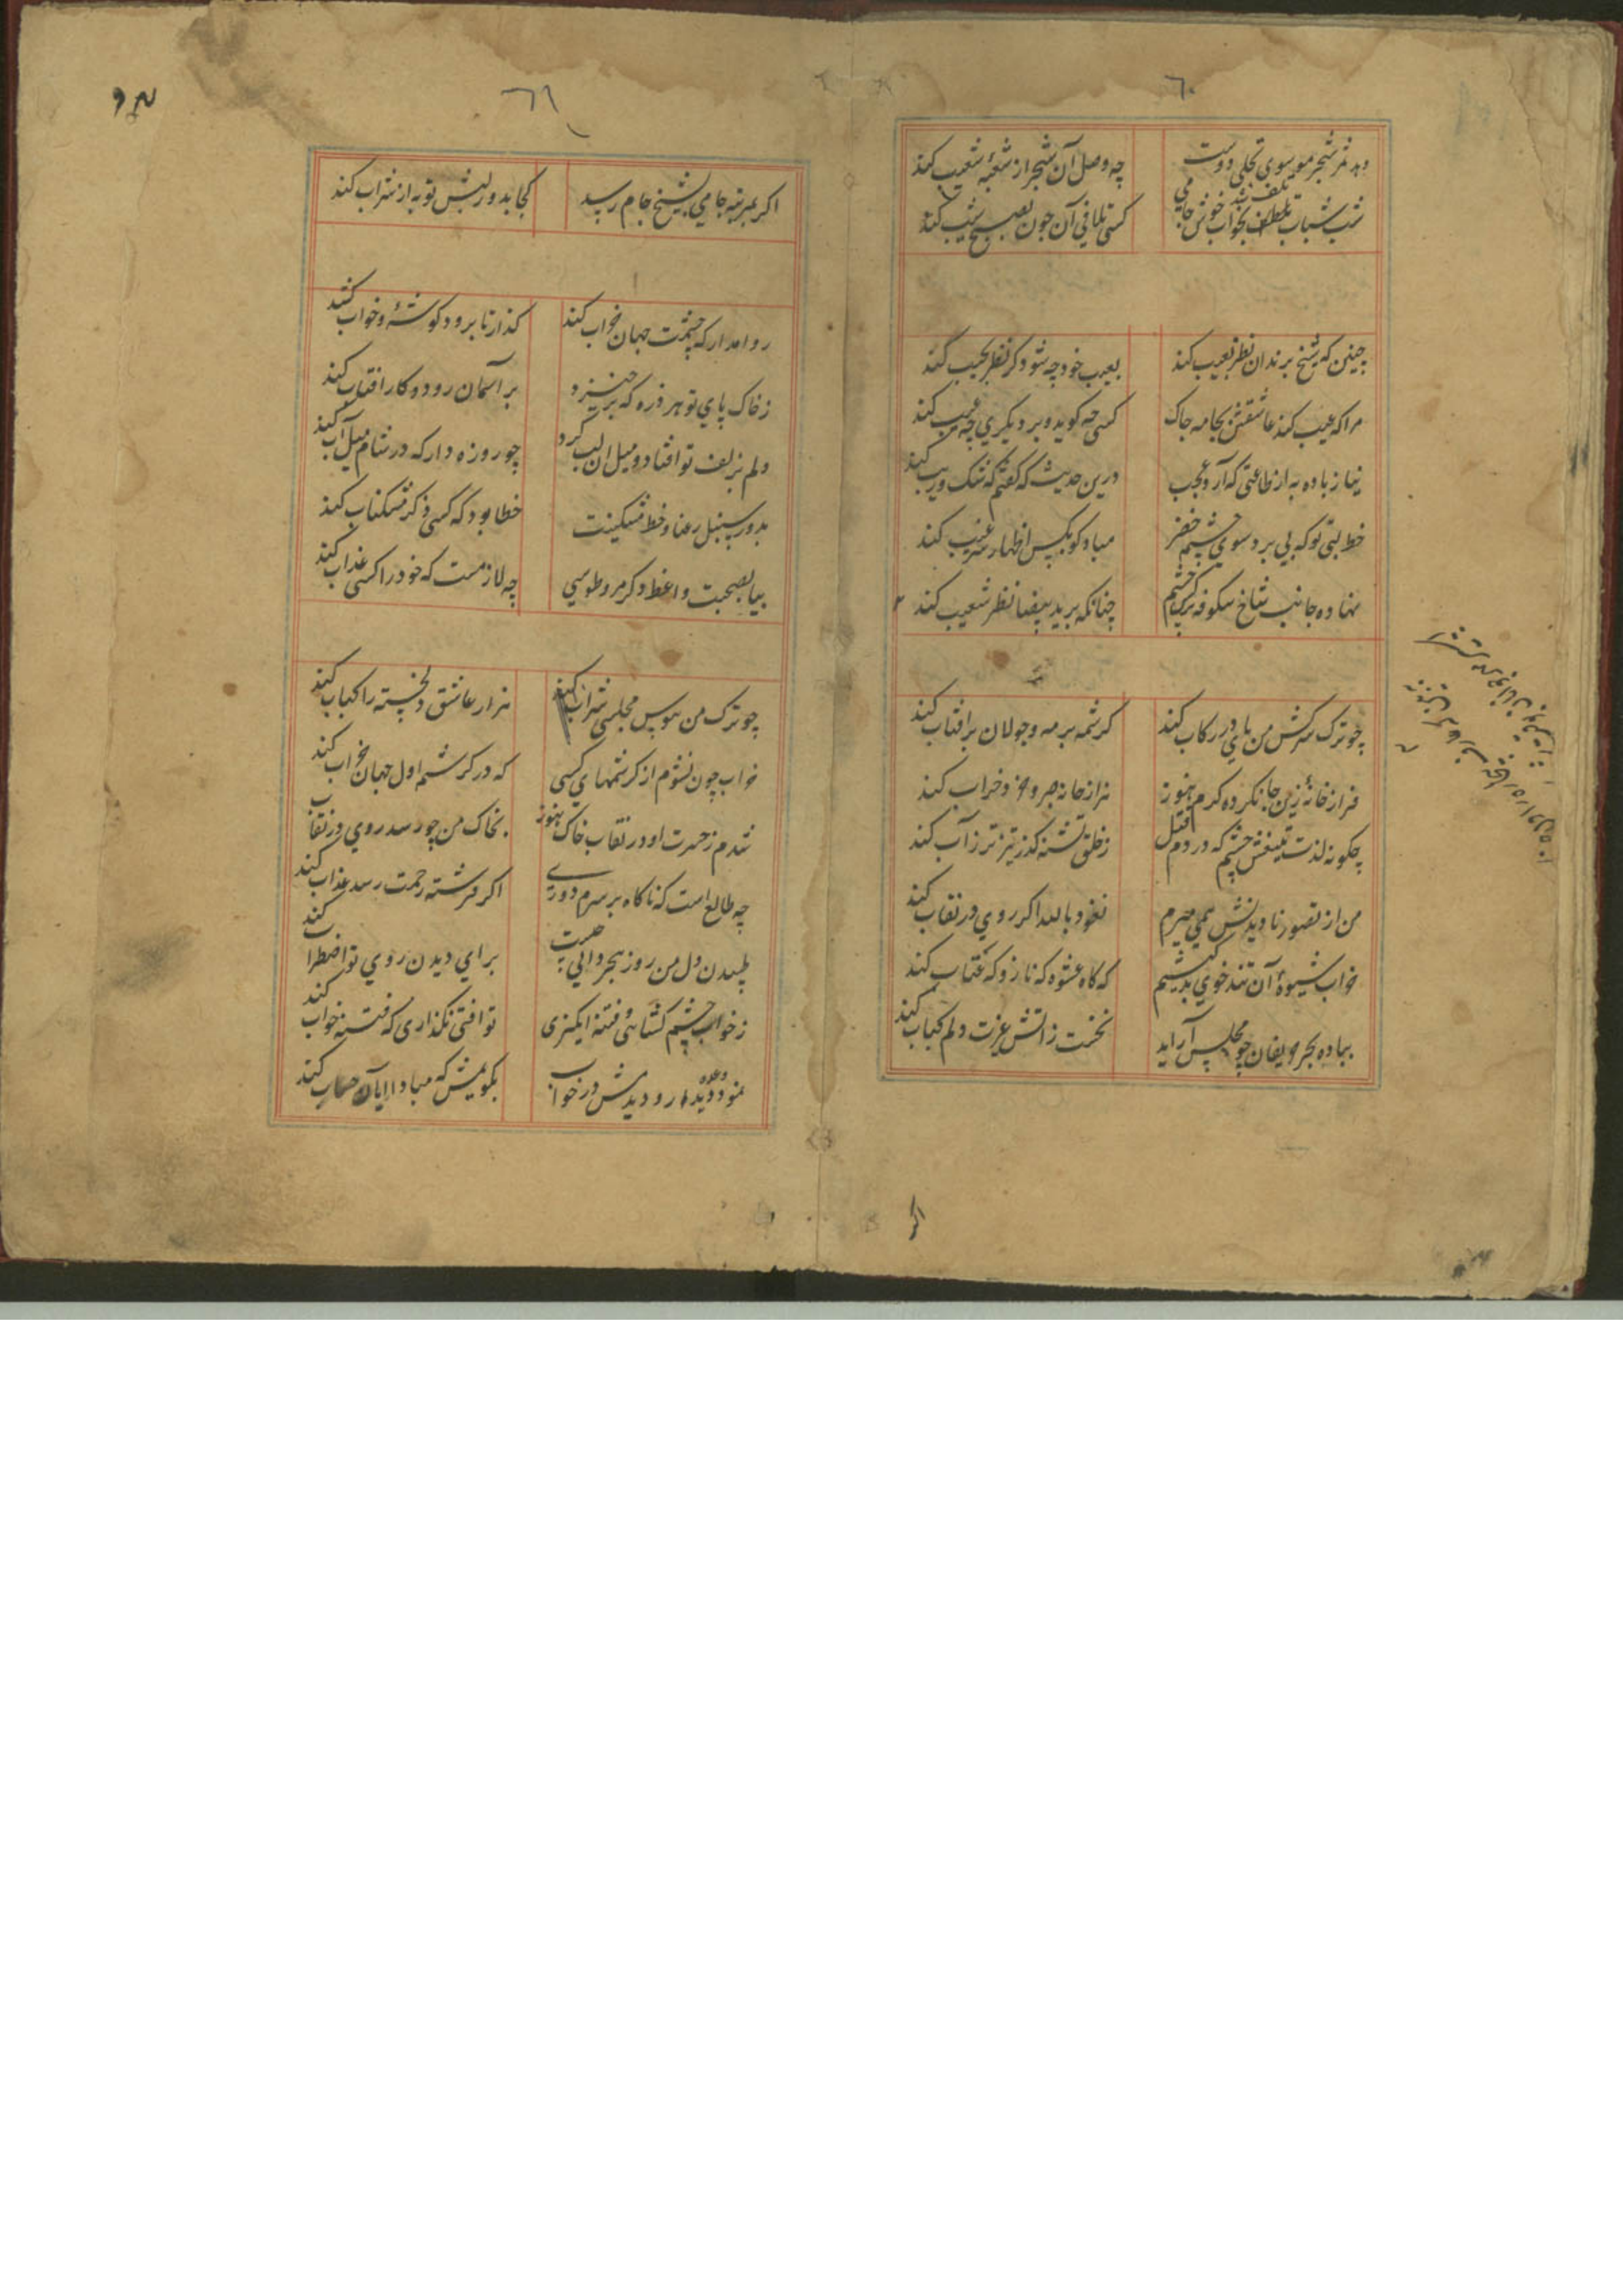 ٦٠
دهد ثمر شجر موسوی تجلی دوست چه وصل آن شجر از شعبهٔ شعیب کند
شب شباب بخواب خوش جامی کسی تلافی آن چون بصبح شیب کند
چنین که شیخ برندان نظر بعیب کند بعیب خود چه شود گر نظر بجیب کند
مرا که عیب کند عاشقی بجامه چاک کسی چه گوید و بر دیگری چه عیب کند
نیاز باده به از طاعتی که آرد عجب درین حدیث که گفتم که شک و ریب کند
خط لبی تو که پی برد سوی چشمه خضر مباد کو بکس اظهار غیب کند
نهاده جانب شاخ شکوفه نرگس چشم چنانکه بر ید بیضا نظر شعیب کند
چو ترک سرکش من پای در رکاب کند کرشمه بر مه و جولان بر آفتاب کند
فراز خانهٔ زین جا نکرده گرم هنوز هزار خانه صبر و خرد خراب کند
چگونه لذت تیغش چشم که در دم قتل ز خلق تشنه گذر تیزتر ز آب کند
من از تصور نادیدنش همی میرم نعوذ بالله اگر روی در نقاب کند
خراب شیوهٔ آن تند خوی بدکیشم که گاه عشوه گه ناز و گه عتاب کند
بباده بهر حریفان چو مجلس آراید نخست ز آتش غیرت دلم کباب کند
٦١
اگر بمرتبه جامی بشیخ جام رسد کجا بدور لبش توبه از شراب کند
روا مدار که چشمت جهان خراب کند گذار تا برود گوشهٔ و خواب کند
ز خاک پای تو هر ذره که برخیزد بر آسمان رود و کار آفتاب کند
دلم بزلف تو افتاد و میل آن لب کرد چو روزه دار که در شام میل آب کند
بدور سنبل رعنا و خط مشکینت خطا بود که کسی ذکر مشکناب کند
بیا بصحبت واعظ دگر مرو طوسی چه لازمست که خود را کسی عذاب کند
چو ترک من هوس مجلس شراب کند هزار عاشق دلخسته را کباب کند
خراب چون نشوم از کرشمهای کسی که در کرشمه اول جهان خراب کند
شدم ز حسرت او در نقاب خاک هنوز بخاک من چو رسد روی در نقاب کند
چه طالع است که ناگاه بر سرم دوری اگر فرشته رحمت رسد عذاب کند
طپیدن دل من روز هجر دانی چیست برای دیدن روی تو اضطراب کند
ز خواب چشم گشائی و فتنه انگیزی تو آفتی نگذاری که فتنه خواب کند
نمود وعده دیدار و دیدمش در خواب بگویمش که مبادا آن حساب کند